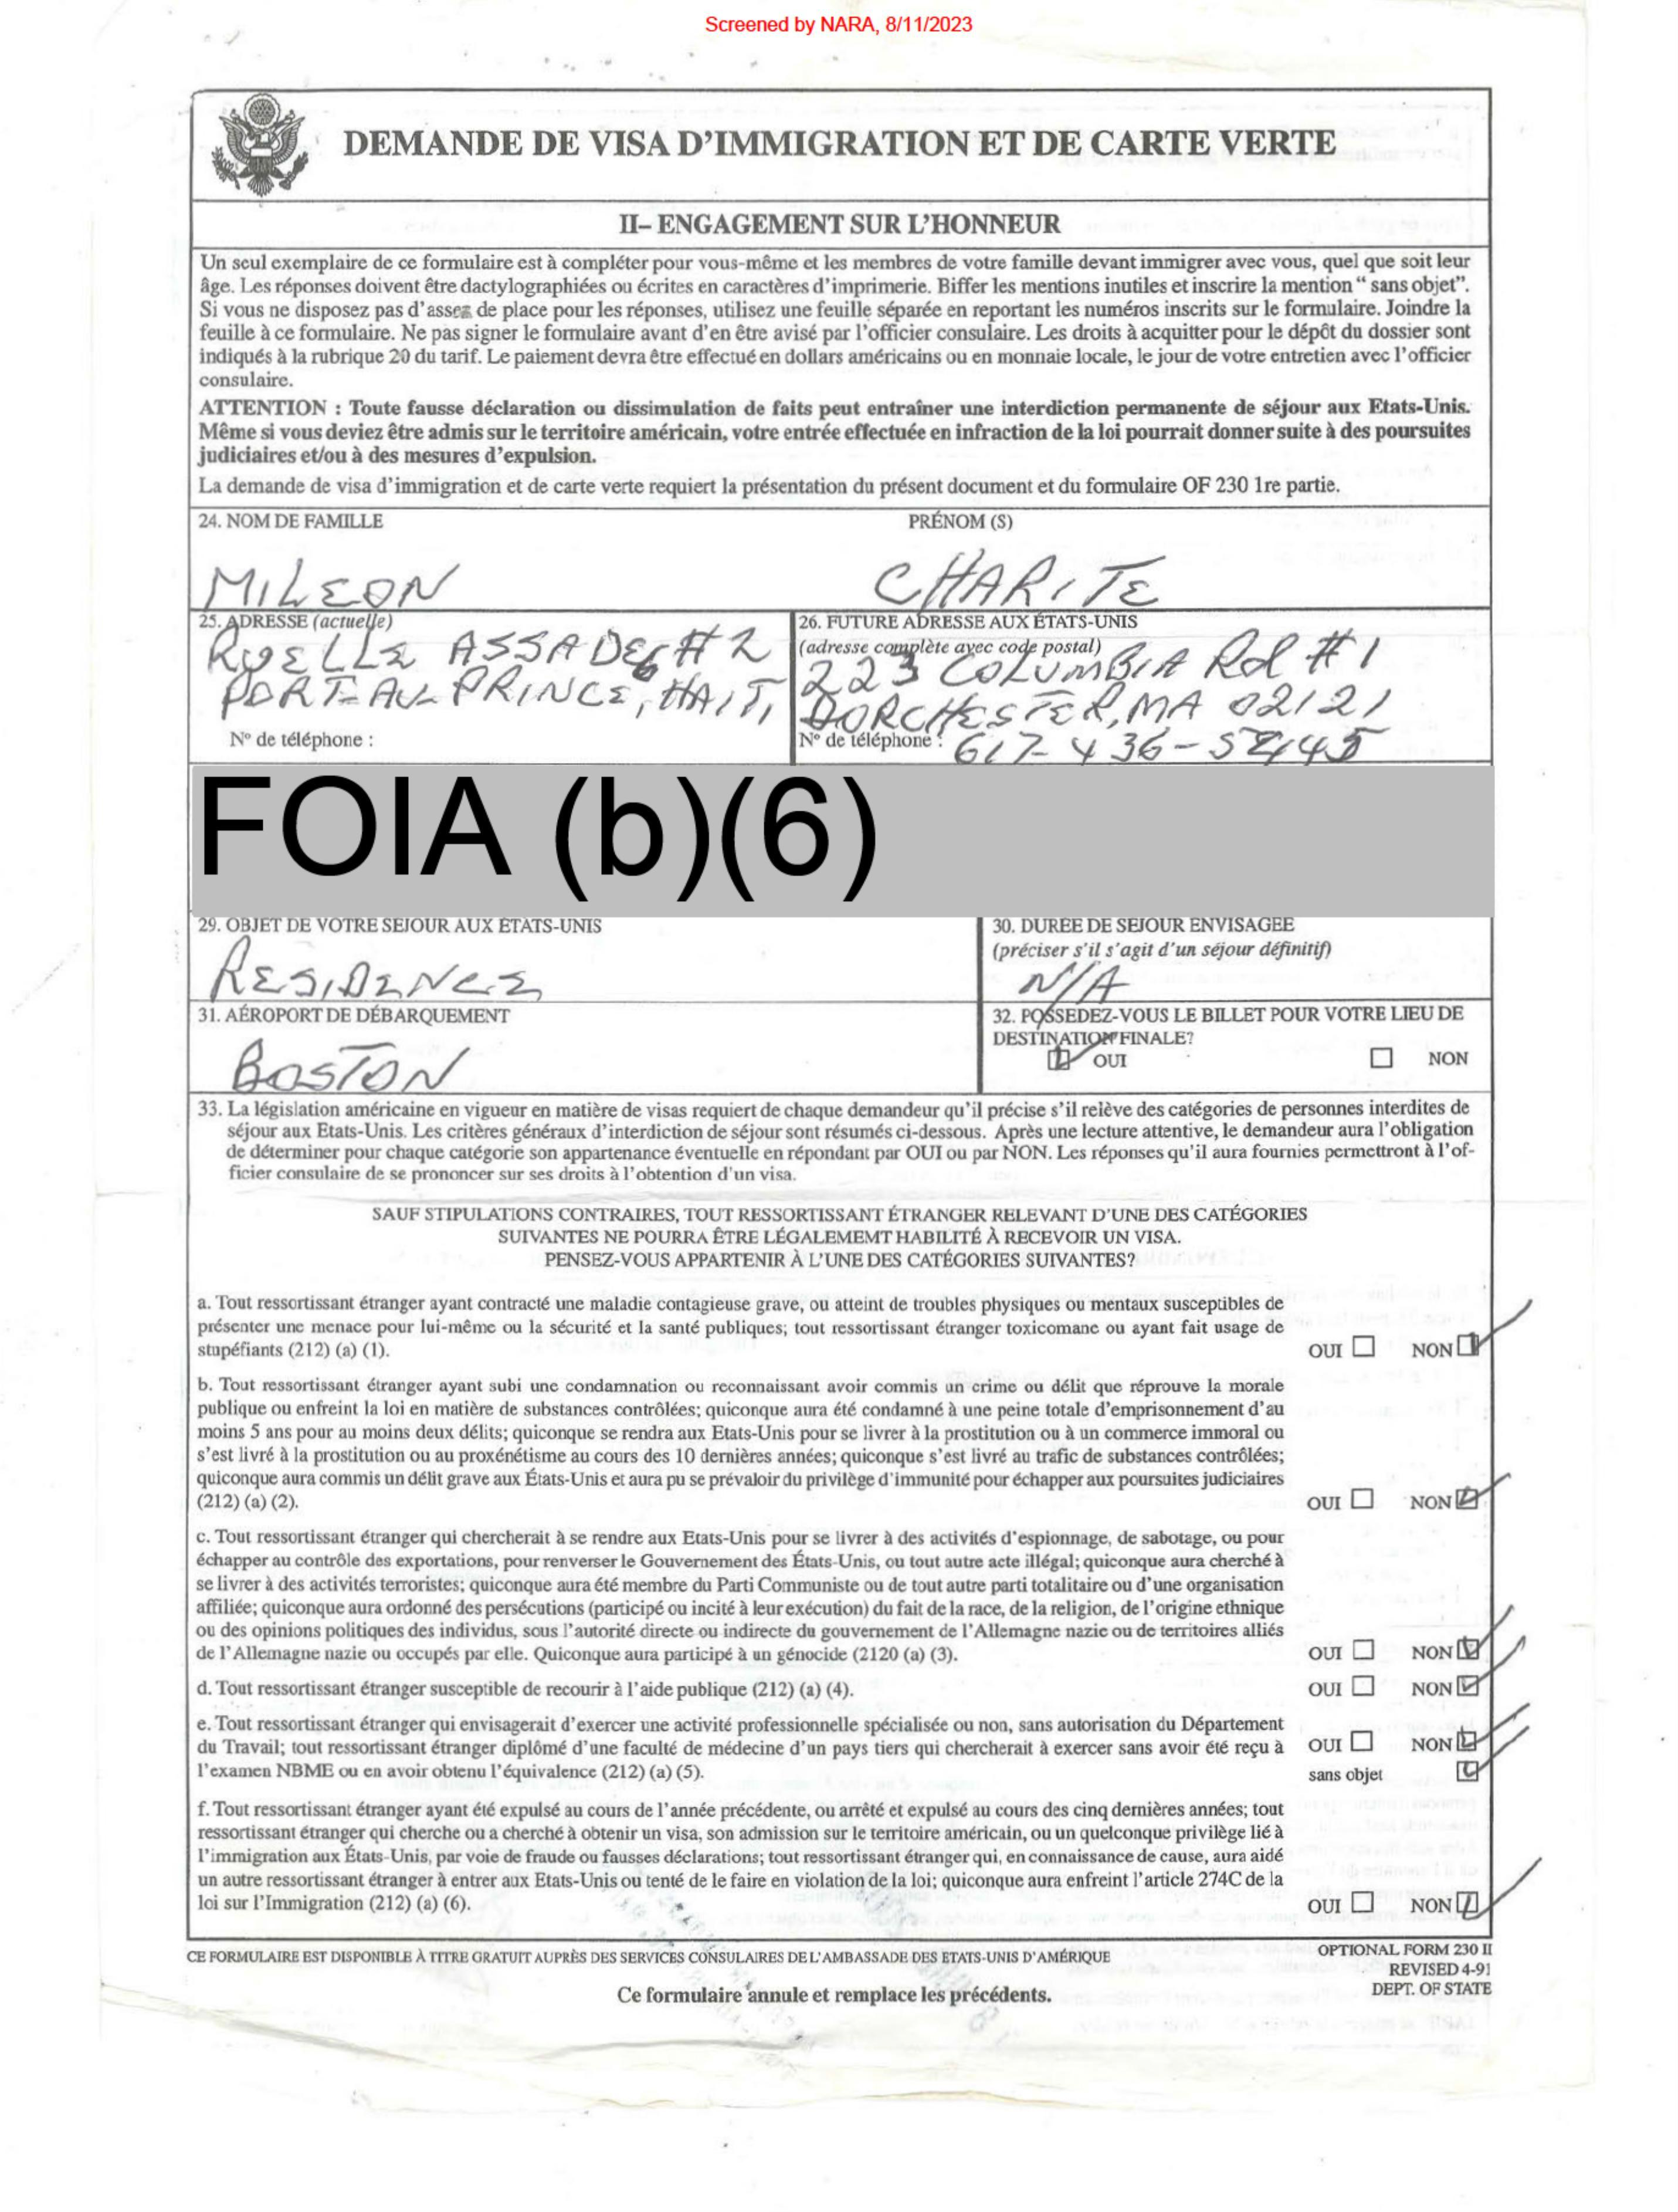 Screened by NARA, 8/11/2023
DEMANDE DE VISA D'IMMIGRATION ET DE CARTE VERTE
II– ENGAGEMENT SUR L'HONNEUR
Un seul exemplaire de ce formulaire est à compléter pour vous-même et les membres de votre famille devant immigrer avec vous, quel que soit leur
âge. Les réponses doivent être dactylographiées ou écrites en caractères d'imprimerie. Biffer les mentions inutiles et inscrire la mention “ sans objet”.
Si vous ne disposez pas d'assez de place pour les réponses, utilisez une feuille séparée en reportant les numéros inscrits sur le formulaire. Joindre la
feuille à ce formulaire. Ne pas signer le formulaire avant d'en être avisé par l'officier consulaire. Les droits à acquitter pour le dépôt du dossier sont
indiqués à la rubrique 20 du tarif. Le paiement devra être effectué en dollars américains ou en monnaie locale, le jour de votre entretien avec l'officier
consulaire.
ATTENTION : Toute fausse déclaration ou dissimulation de faits peut entraîner une interdiction permanente de séjour aux Etats-Unis.
Même si vous deviez être admis sur le territoire américain, votre entrée effectuée en infraction de la loi pourrait donner suite à des poursuites
judiciaires et/ou à des mesures d'expulsion.
La demande de visa d'immigration et de carte verte requiert la présentation du présent document et du formulaire OF 230 1re partie.
24. NOM DE FAMILLE PRÉNOM (S)
MILEON CHARITE
25. ADRESSE (actuelle)
RUELLE ASSADE #2
PORT-AU-PRINCE, HAITI
N° de téléphone :
26. FUTURE ADRESSE AUX ÉTATS-UNIS
(adresse complète avec code postal)
223 COLUMBIA Rd #1
DORCHESTER, MA 02121
N° de téléphone : 617-436-
FOIA (b)(6)
29. OBJET DE VOTRE SEJOUR AUX ÉTATS-UNIS
RESIDENCE
30. DURÉE DE SEJOUR ENVISAGÉE
(préciser s'il s'agit d'un séjour définitif)
N/A
31. AÉROPORT DE DÉBARQUEMENT
BOSTON
32. POSSEDEZ-VOUS LE BILLET POUR VOTRE LIEU DE
DESTINATION FINALE?
OUI NON
33. La législation américaine en vigueur en matière de visas requiert de chaque demandeur qu'il précise s'il relève des catégories de personnes interdites de
séjour aux Etats-Unis. Les critères généraux d'interdiction de séjour sont résumés ci-dessous. Après une lecture attentive, le demandeur aura l'obligation
de déterminer pour chaque catégorie son appartenance éventuelle en répondant par OUI ou par NON. Les réponses qu'il aura fournies permettront à l'of-
ficier consulaire de se prononcer sur ses droits à l'obtention d'un visa.
SAUF STIPULATIONS CONTRAIRES, TOUT RESSORTISSANT ÉTRANGER RELEVANT D'UNE DES CATÉGORIES
SUIVANTES NE POURRA ÊTRE LÉGALEMEMT HABILITÉ À RECEVOIR UN VISA.
PENSEZ-VOUS APPARTENIR À L'UNE DES CATÉGORIES SUIVANTES?
a. Tout ressortissant étranger ayant contracté une maladie contagieuse grave, ou atteint de troubles physiques ou mentaux susceptibles de
présenter une menace pour lui-même ou la sécurité et la santé publiques; tout ressortissant étranger toxicomane ou ayant fait usage de
stupéfiants (212) (a) (1). OUI NON
b. Tout ressortissant étranger ayant subi une condamnation ou reconnaissant avoir commis un crime ou délit que réprouve la morale
publique ou enfreint la loi en matière de substances contrôlées; quiconque aura été condamné à une peine totale d'emprisonnement d'au
moins 5 ans pour au moins deux délits; quiconque se rendra aux Etats-Unis pour se livrer à la prostitution ou à un commerce immoral ou
s'est livré à la prostitution ou au proxénétisme au cours des 10 dernières années; quiconque s'est livré au trafic de substances contrôlées;
quiconque aura commis un délit grave aux États-Unis et aura pu se prévaloir du privilège d'immunité pour échapper aux poursuites judiciaires
(212) (a) (2). OUI NON
c. Tout ressortissant étranger qui chercherait à se rendre aux Etats-Unis pour se livrer à des activités d'espionnage, de sabotage, ou pour
échapper au contrôle des exportations, pour renverser le Gouvernement des États-Unis, ou tout autre acte illégal; quiconque aura cherché à
se livrer à des activités terroristes; quiconque aura été membre du Parti Communiste ou de tout autre parti totalitaire ou d'une organisation
affiliée; quiconque aura ordonné des persécutions (participé ou incité à leur exécution) du fait de la race, de la religion, de l'origine ethnique
ou des opinions politiques des individus, sous l'autorité directe ou indirecte du gouvernement de l'Allemagne nazie ou de territoires alliés
de l'Allemagne nazie ou occupés par elle. Quiconque aura participé à un génocide (2120 (a) (3). OUI NON
d. Tout ressortissant étranger susceptible de recourir à l'aide publique (212) (a) (4). OUI NON
e. Tout ressortissant étranger qui envisagerait d'exercer une activité professionnelle spécialisée ou non, sans autorisation du Département
du Travail; tout ressortissant étranger diplômé d'une faculté de médecine d'un pays tiers qui chercherait à exercer sans avoir été reçu à OUI NON
l'examen NBME ou en avoir obtenu l'équivalence (212) (a) (5). sans objet
f. Tout ressortissant étranger ayant été expulsé au cours de l'année précédente, ou arrêté et expulsé au cours des cinq dernières années; tout
ressortissant étranger qui cherche ou a cherché à obtenir un visa, son admission sur le territoire américain, ou un quelconque privilège lié à
l'immigration aux États-Unis, par voie de fraude ou fausses déclarations; tout ressortissant étranger qui, en connaissance de cause, aura aidé
un autre ressortissant étranger à entrer aux Etats-Unis ou tenté de le faire en violation de la loi; quiconque aura enfreint l'article 274C de la
loi sur l'Immigration (212) (a) (6). OUI NON
CE FORMULAIRE EST DISPONIBLE À TITRE GRATUIT AUPRÈS DES SERVICES CONSULAIRES DE L'AMBASSADE DES ETATS-UNIS D'AMÉRIQUE
OPTIONAL FORM 230 II
REVISED 4-91
DEPT. OF STATE
Ce formulaire annule et remplace les précédents.